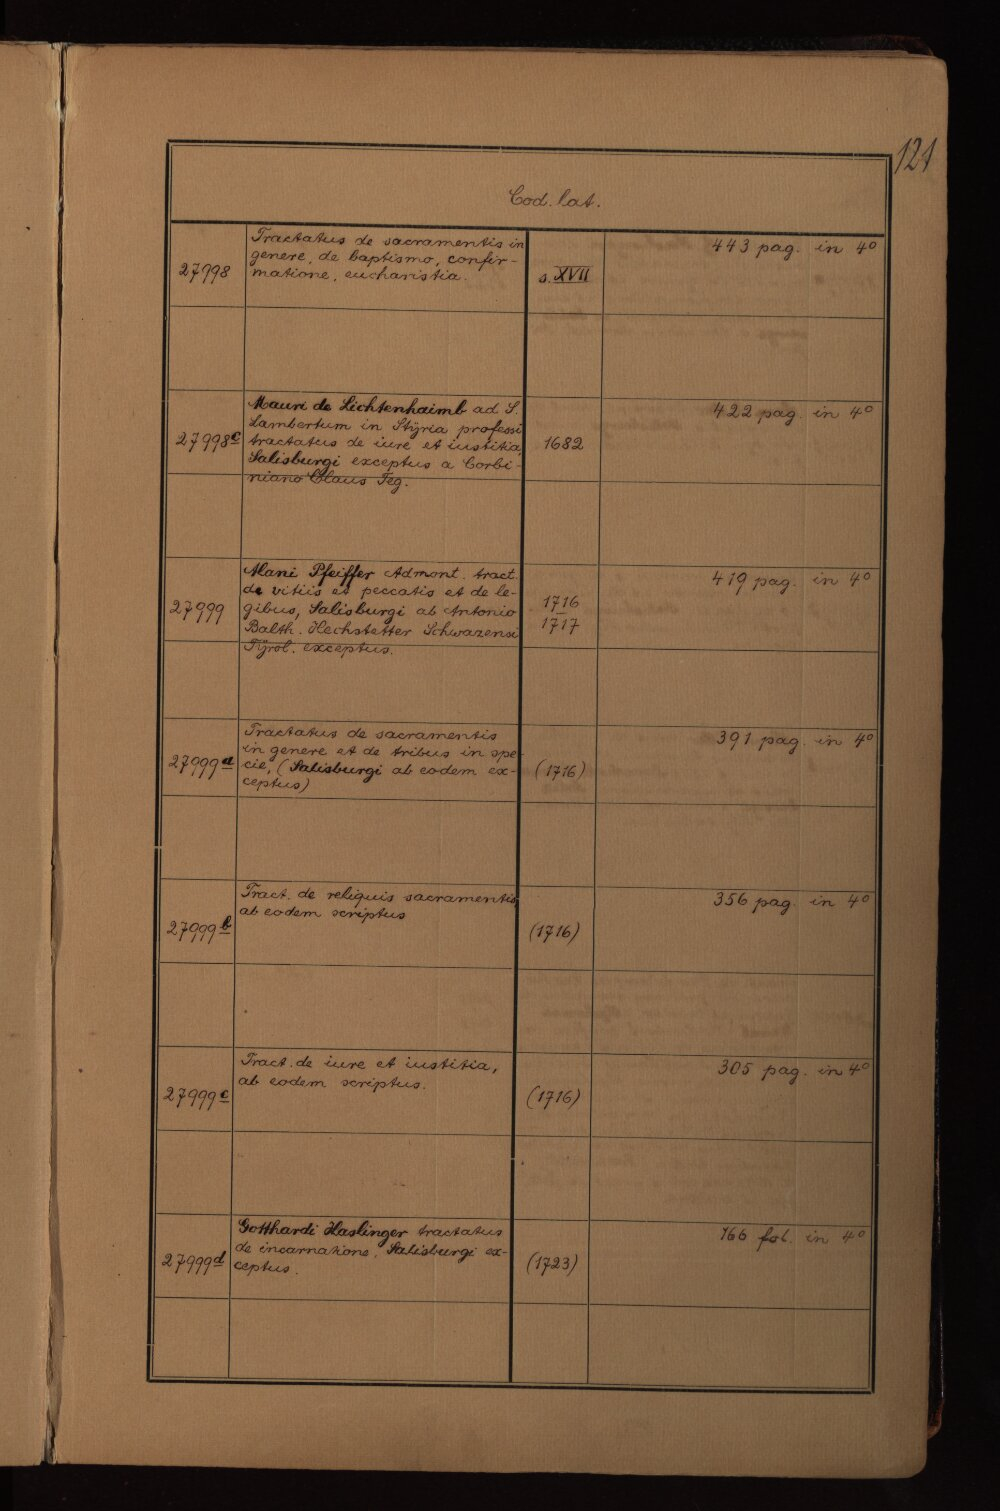 121
Cod. lat.
27998
Tractatus de sacramentis in
genere, de baptismo, confir-
matione, eucharistia.
s. XVII
443 pag. in 4°
27998c
Mauri de Lichtenhaimb ad S.
Lambertum in Styria professi
tractatus de iure et iustitia,
Salisburgi exceptus a Corbi-
niano Claus Teg.
1682
422 pag. in 4°
27999
Alani Pfeiffer Admont. tract.
de vitiis et peccatis et de le-
gibus, Salisburgi ab Antonio
Balth. Hechstetter Schwazensi
Tyrol. exceptus.
1716
1717
419 pag. in 4°
27999a
Tractatus de sacramentis
in genere et de tribus in spe-
cie, (Salisburgi ab eodem ex-
ceptus)
(1716)
391 pag. in 4°
27999b
Tract. de reliquis sacramentis
ab eodem scriptus
(1716)
356 pag. in 4°
27999c
Tract. de iure et iustitia,
ab eodem scriptus.
(1716)
305 pag. in 4°
27999d
Gotthardi Haslinger tractatus
de incarnatione, Salisburgi ex-
ceptus.
(1723)
166 fol. in 4°